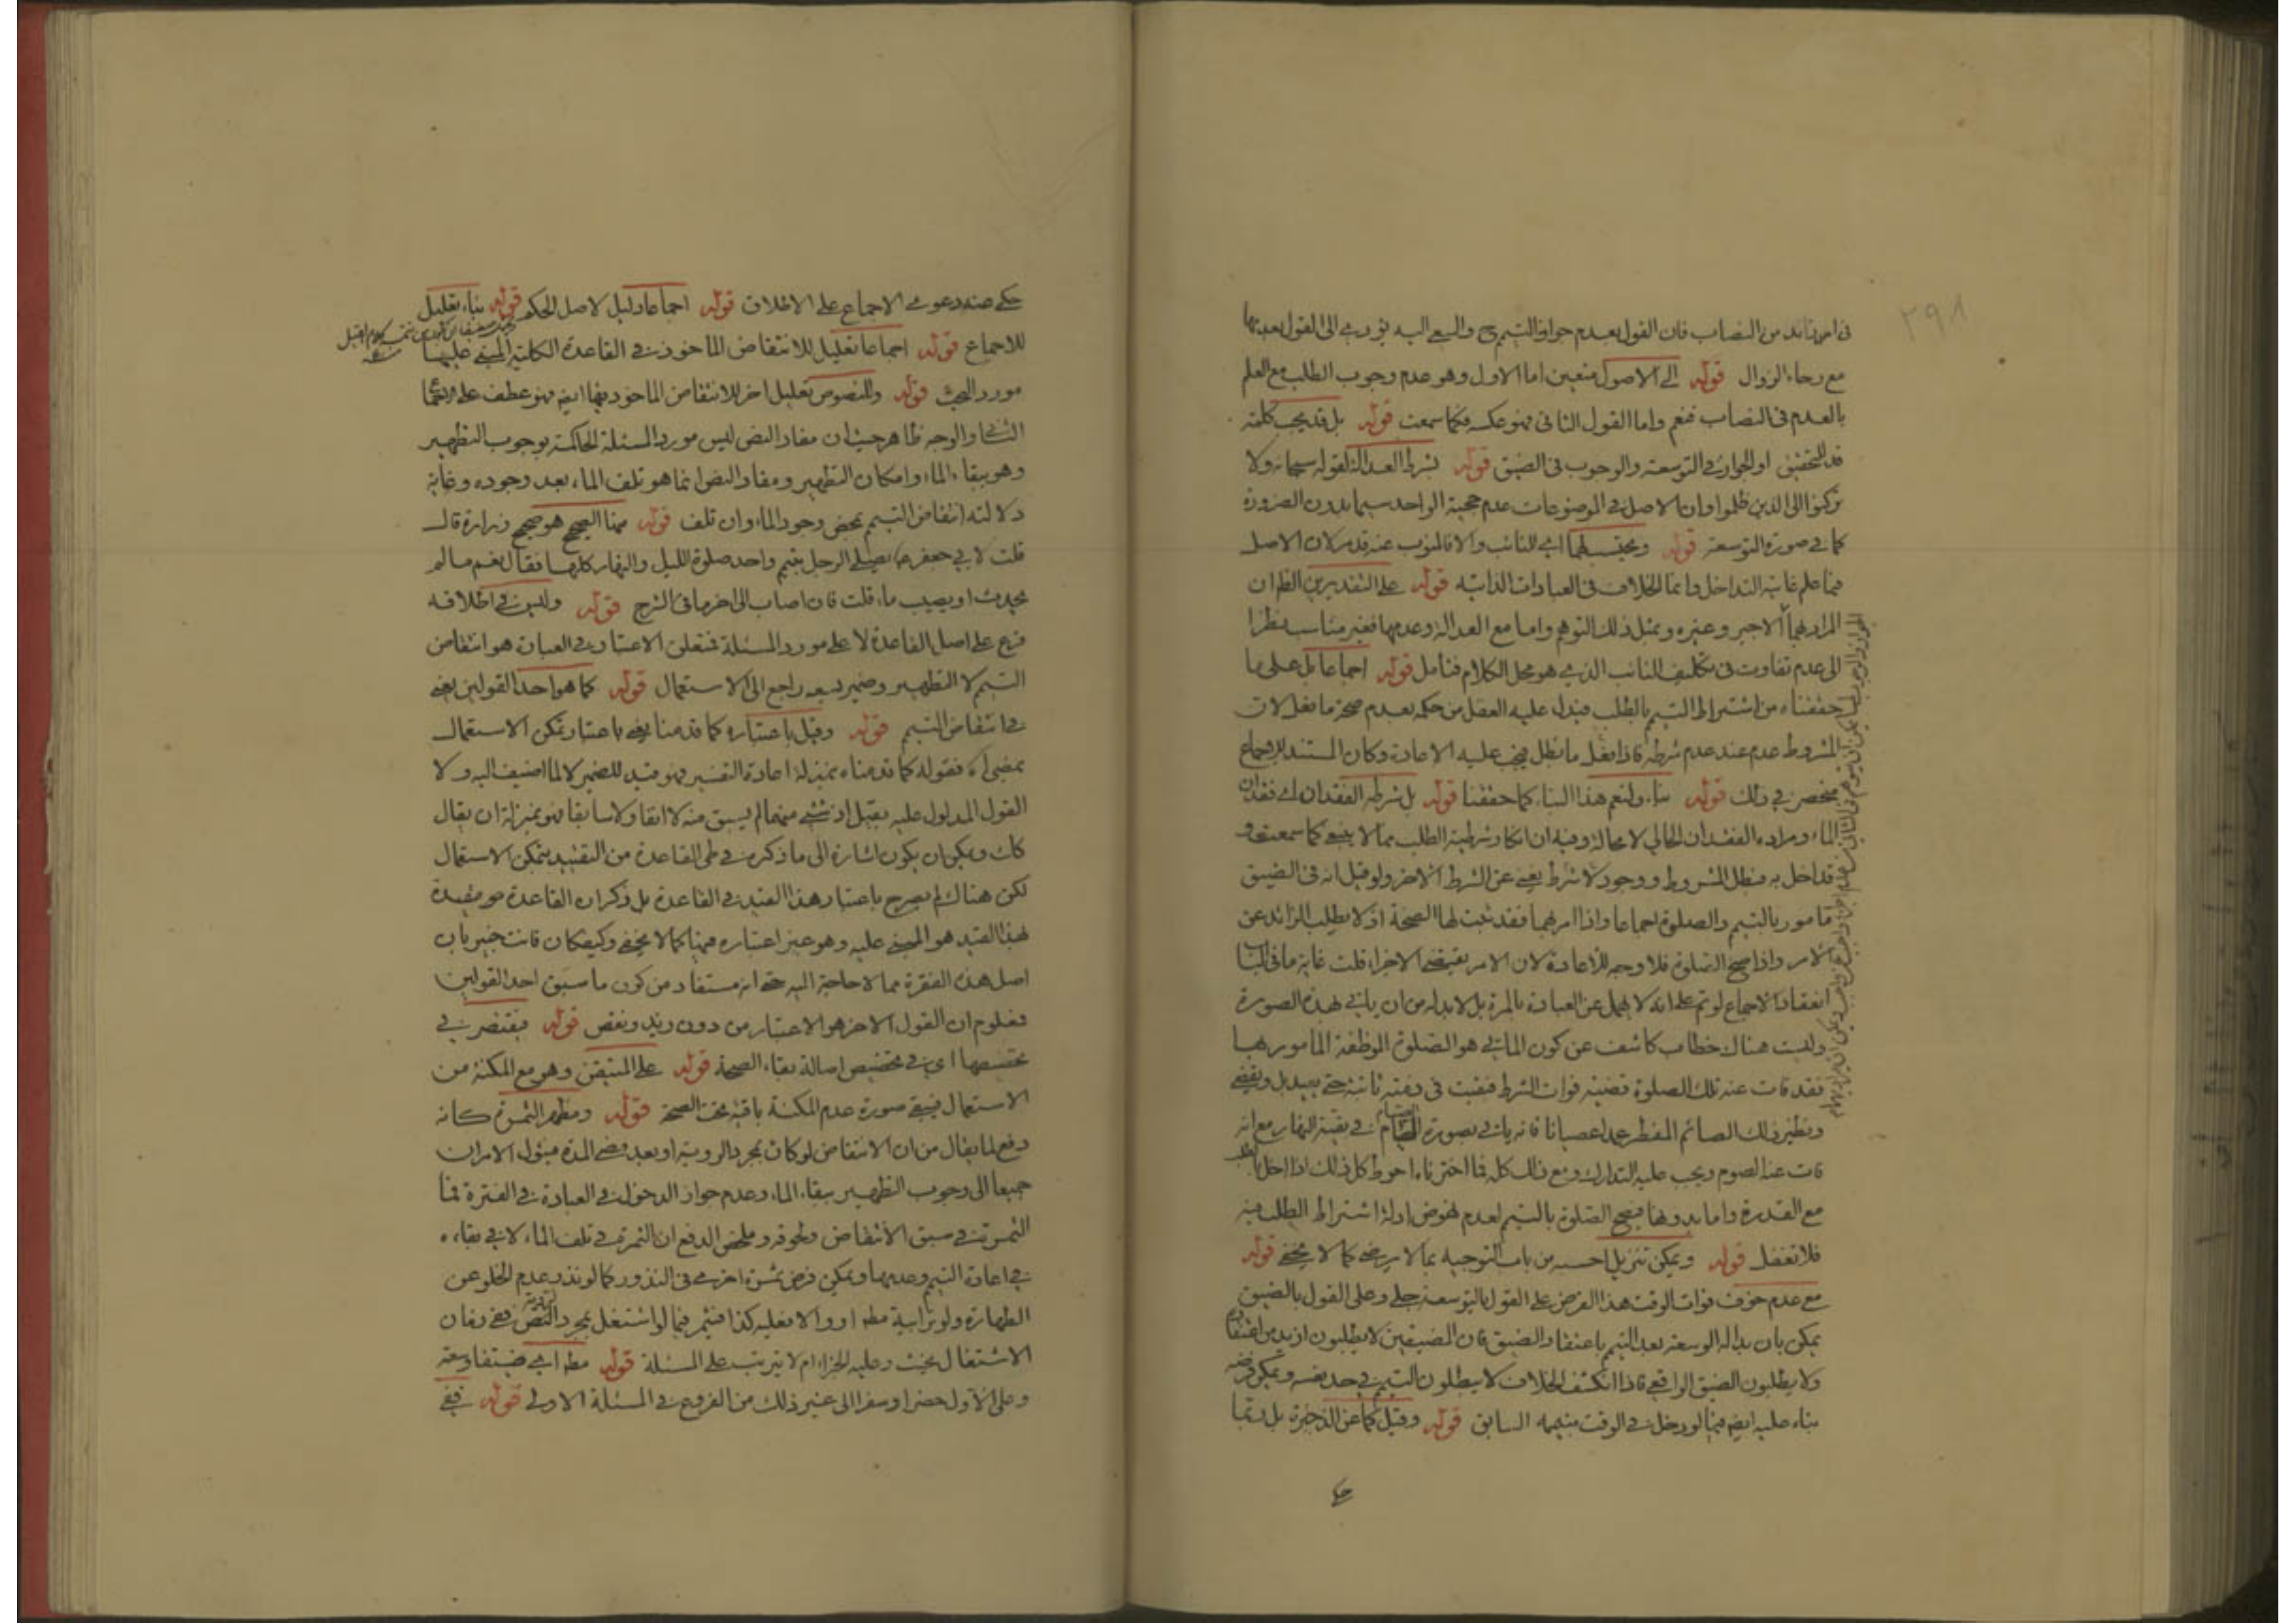 ٢٩٨
فى امر زائد من النصاب فان القول بعدم جواز التيمم ح والسعى اليه يؤدى الى القول بعدمها
مع رجاء الزوال قوله الى الاصول متعين اما الاول وهو عدم وجوب الطلب مع العلم
بالعدم فى النصاب فنعم واما القول الثانى فهو عكسه فكما سمعت قوله بل قد يجب كلمة
قد للتحقيق او الجواز فى التوسعة والوجوب فى الضيق قوله بشرط العدالة لقوله سبحانه ولا
تركنوا الى الذين ظلموا وان الاصل فى الموضوعات عدم حجية الواحد سيما بدون الضرورة
كما فى صورة التوسعة قوله ويحتسب لهما اى للنائب والا فالمنوب عنه قد مر لان الاصل
فيما علم غايته التداخل وانما الخلاف فى العبادات الذاتيه قوله على التقديرين الظ ان
المراد بهما الاجير وغيره ويمثل ذلك التوهم واما مع العدالة وعدمها فغير مناسب نظرا
الى عدم تفاوت فى تكليف النائب الذى هو محل الكلام فتامل قوله اجماعا بل على ما
حققناه من اشتراط التيمم بالطلب فيدل عليه العقل من حكمه بعدم صحة ما فعل لان
المشروط عدم عند عدم شرطه فاذا فعل ما بطل فيجب عليه الاعادة وكان المستند للاجماع
منحصر فى ذلك قوله بناء ولنعم هذا البناء كما حققنا قوله بل شرطه الفقدان اى فقدان
الماء ومراده الفقدان الحالى لا محالة وفيه ان انكار شرطية الطلب مما لا ينبغى كما سمعت و
قد اخل به فبطل المشروط ووجود لا شرط يغنى عن الشرط الاخر ولو قيل انه فى الضيق
مامور بالتيمم والصلوة اجماعا واذا امر بهما فقد ثبت لها الصحة اذ لا يطلب الزائد عن
الامر واذا صح الصلوة فلا وجه للاعادة لان الامر يقتضى الاجزاء قلت غاية ما فى الباب
انعقاد الاجماع لو تم على انه لا يهمل عن العبادة بالمرة بل لا بد له من ان ياتى بهذه الصورة
وليست هناك خطاب كاشف عن كون الماتى هو الصلوة الموظفة المامور بها
فقد فات عنه تلك الصلوة قضية فوات الشرط فبقيت فى ذمته ثابتة حتى يعيد بل ويقضى
ونظير ذلك الصائم المفطر عمدا عصيانا فانه ياتى بصورة الصيام فى بقية النهار مع انه
فات عنه الصوم ويجب عليه التدارك ومع ذلك كله فما اخترناه احوط كل ذلك اذا اخل بالطلب
مع القدرة واما بدونها فيصح الصلوة بالتيمم لعدم نهوض ادلة اشتراط الطلب فيه
فلا تغفل قوله ويمكن تنزيل احسبه من باب التوجيه بما لا يرضى كما لا يخفى قوله
مع عدم خوف فوات الوقت هذا الفرض على القول بالتوسعة جلى وعلى القول بالضيق
يمكن بان بدا له الوسعة بعد التيمم باعتقاد الضيق فان المضيقين لا يطلبون ازيد من اعتقاده
ولا يطلبون الضيق الواقعى فاذا انكشف الخلاف لا يبطلون التيمم فى حد نفسه ويمكن فرضه
بناء عليه ايضا فيما لو دخل فى الوقت بتيممه السابق قوله وقيل كما عن الذخيرة بل ربما
حكى
حكى عنه دعوى الاجماع على الاطلاق قوله اجماعا دليل لاصل الحكم قوله بناء تعليل
للاجماع قوله اجماعا تعليل للانتقاض الماخوذ فى القاعدة الكلية المبنى عليها
مورد البحث قوله والنصوص تعليل اخر للانتقاض الماخوذ فيها ايضا فهو عطف على
الثانى والوجه ظاهر حيث ان مفاد النص ليس مورد المسئلة الحاكمة بوجوب التطهير
وهو ببقاء الماء وامكان التطهير ومفاد النص انما هو تلف الماء بعد وجوده وغاية
دلالته انتقاض التيمم بمحض وجود الماء وان تلف قوله فمنها الصحيح هو صحيح زرارة قال
قلت لابى جعفر ع يصلى الرجل بتيمم واحد صلوة الليل والنهار كلها فقال نعم ما لم
يحدث او يصيب ماء قلت فان اصاب الى اخر ما فى الشرح قوله وليس فى اطلاقه
فرع على اصل القاعدة لا على مورد المسئلة فمتعلق الاعتبار فى العبارة هو انتقاض
التيمم لا التطهير وضمير يسعه راجع الى الاستعمال قوله كما هو احد القولين يعنى
فى انتقاض التيمم قوله وقيل باعتباره كما قدمنا يعنى باعتبار تمكن الاستعمال
بمضى اه فقوله كما قدمناه بمنزلة اعادة التفسير فهو قيد للضمير لا لما اضيف اليه ولا
القول المدلول عليه بقيل اذ شئ منهما لم يسبق منه لا انفا ولا سابقا فهو بمنزلة ان يقال
كان ويمكن ان يكون اشارة الى ما ذكره فى طى القاعدة من التقييد بتمكن الاستعمال
لكن هناك لم يصرح باعتبار هذا القيد فى القاعدة بل ذكر ان القاعدة هو مقيدة
بهذا القيد هو المبنى عليه وهو غير اعتباره فيهما كما لا يخفى وكيفكان فانت خبير بان
اصل هذه الفقرة مما لا حاجة اليه حتى انه مستفاد من كون ما سبق احد القولين
فمعلوم ان القول الاخر هو الاعتبار من دون زيد ونقص قوله فيقتصر فى
تخصيصها اى فى تخصيص اصالة بقاء الصحة قوله على المتيقن وهو مع المكنة من
الاستعمال فيبقى صورة عدم المكنة باقية تحت الصحة قوله ومظهر الثمرة كانه
دفع لما يقال من ان الانتقاض لو كان بمجرد الروية او بعد مضى المدة فيئول الامران
جميعا الى وجوب التطهير ببقاء الماء وعدم جواز الدخول فى العبادة فى الفترة فما
الثمرة فى سبق الانتقاض ولحوقه وملخص الدفع ان الثمرة فى تلف الماء لا فى بقاءه
فى اعادة التيمم وعدمها ويمكن فرض ثمرة اخرى فى النذور كما لو نذر عدم الخلو عن
الطهارة ولو ترابية مط او والا فعليه كذا فيثمر فيما لو اشتغل بمجرد النقض ففى زمان
الاشتغال يحنث وعليه الجزاء ام لا يترتب على المسئلة قوله مط اى ضيقا وسعة
وعلى الاول حضرا وسفرا الى غير ذلك من الفروع فى المسئلة الاولى قوله ففى